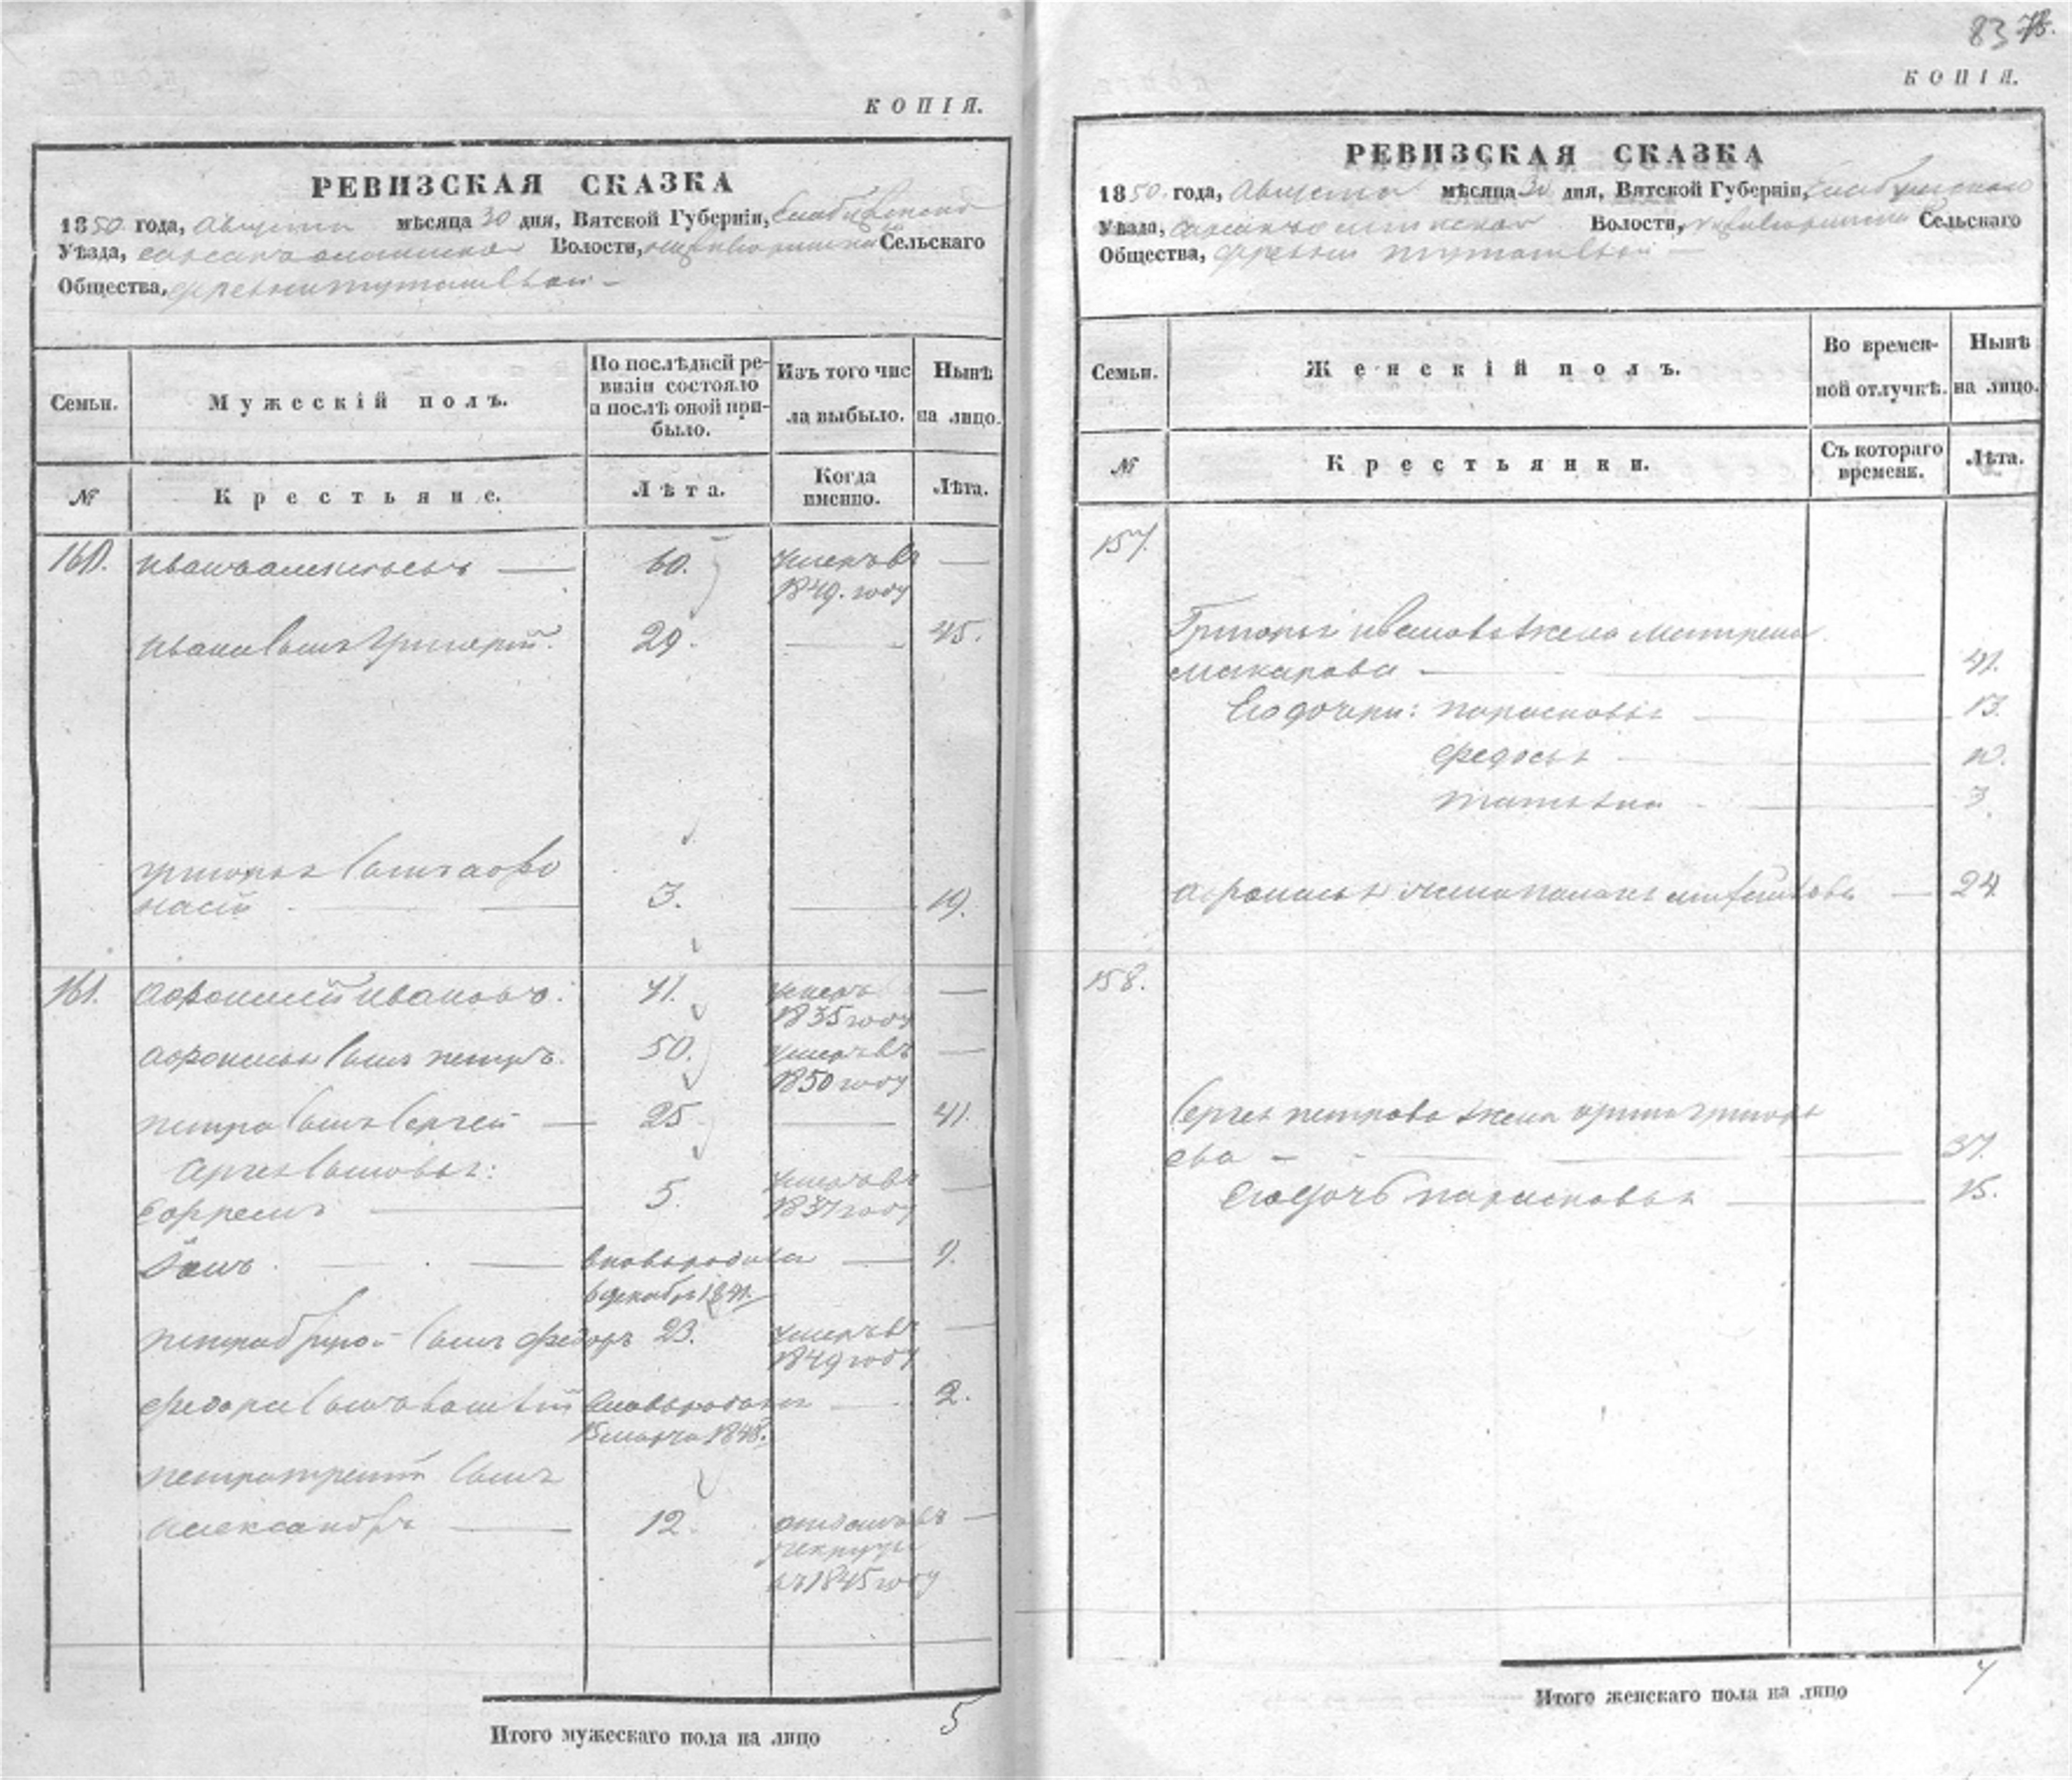 КОПІЯ.
РЕВИЗСКАЯ СКАЗКА
1850 года, Августа мѣсяца 30 дня, Вятской Губерніи,
Уѣзда, Волости, Сельскаго
Общества, деревни
Семьи.
Мужескій полъ.
По послѣдней ре-
визіи состояло
и послѣ оной при-
было.
Изъ того чис
ла выбыло.
Нынѣ
на лицо.
№
Крестьяне.
Лѣта.
Когда
именно.
Лѣта.
160. 60. умеръ въ —
1849. году
Ивана сынъ Григорій. 29. — 45.
Григорья сынъ Афо
насій — 3. — 19.
161. Афонасій Ивановъ. 41. умеръ —
1835 году
Афонасья сынъ Петръ. 50. умеръ въ —
1850 году
Петра сынъ Сергей — 25 — 41.
Сергея сыновья:
Ефремъ — 5. умеръ въ —
1837 году
вновьрожден —
6 декабря 1841.
Петра другой сынъ Федоръ 23. умеръ въ —
1849 году
Федора сынъ Василій вновьрожден — 2.
15 марта 1848.
Петра третій сынъ
Александръ — 12. отданъ въ —
рекруты
въ 1845 году
Итого мужескаго пола на лицо 5
83
КОПІЯ.
РЕВИЗСКАЯ СКАЗКА
1850. года, Августа мѣсяца 30 дня, Вятской Губерніи,
Уѣзда, Волости, Сельскаго
Общества, деревни
Семьи.
Женскій полъ.
Во времен-
ной отлучкѣ.
Нынѣ
на лицо.
№
Крестьянки.
Съ котораго
времени.
Лѣта.
157.
Григорья Иванова жена Матрена
Макарова — 41.
Его дочери: Парасковья — 13.
Федосья — 10.
Татьяна — 3.
Афонасья жена — 24
158.
Сергея Петрова жена Ирина Григорь
ева — 37.
Его дочь Парасковья — 15.
Итого женскаго пола на лицо 7